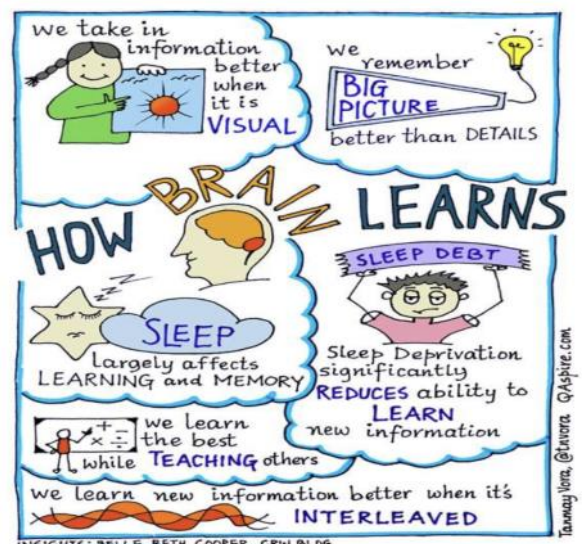 we take in
information
better
when
it is
VISUAL
we
remember
BIG
PICTURE
better than DETAILS
HOW BRAIN LEARNS
SLEEP
largely affects
LEARNING and MEMORY
SLEEP DEBT
Sleep Deprivation
significantly
REDUCES ability to
LEARN
new information
+ -
× ÷
we learn
the best
while TEACHING others
we learn new information better when it's
INTERLEAVED
Tanmay Vora, @tnvora QAspire.com
INSIGHTS: BELLE BETH COOPER, CREW BLOG